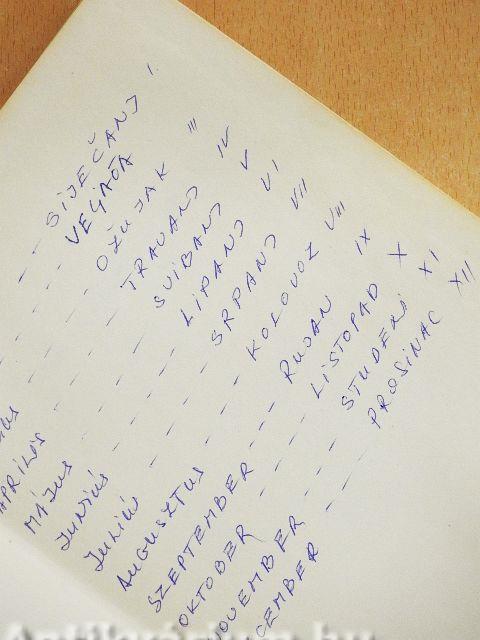 SIJEČANJ I
VELJAČA
OŽUJAK III
ÁPRILIS TRAVANJ IV
MÁJUS SVIBANJ V
JUNIUS LIPANJ VI
JULIUS SRPANJ VII
AUGUSZTUS KOLOVOZ VIII
SZEPTEMBER --- RUJAN IX
OKTOBER --- LISTOPAD X
NOVEMBER --- STUDENI XI
CEMBER --- PROSINAC XII
Antikvárium.hu